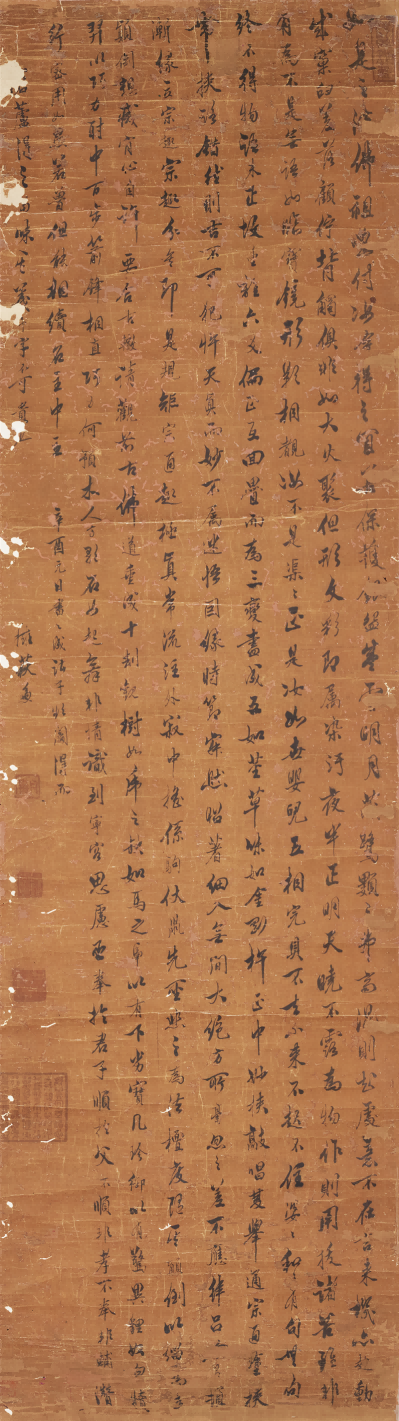 如是之法佛祖密付汝今得之宜善保護銀盌盛雪明月藏鷺類之弗齊混則知處意不在言來機亦赴動
成窠臼差落顧佇背觸俱非如大火聚但形文彩即屬染汙夜半正明天曉不露為物作則用拔諸苦雖非
有為不是無語如臨寶鏡形影相覩汝不是渠渠正是汝如世嬰兒五相完具不去不來不起不住婆婆和和有句無句
終不得物語未正故重離六爻偏正互回疊而為三變盡成五如荎草味如金剛杵正中妙挾敲唱雙舉通宗通塗挾
帶挾路錯然則吉不可犯忤天真而妙不屬迷悟因緣時節寂然昭著細入無間大絕方所毫忽之差不應律呂今有頓
漸緣立宗趣宗趣分矣即是規矩宗通趣極真常流注外寂中搖係駒伏鼠先聖悲之為法檀度隨其顛倒以緇為素
顛倒想滅肯心自許要合古轍請觀前古佛道垂成十劫觀樹如虎之缺如馬之馵以有下劣寶几珍御以有驚異狸奴白牯
羿以巧力射中百步箭鋒相直巧力何預木人方歌石女起舞非情識到寧容思慮臣奉於君子順於父不順非孝不奉非輔潛
行密用如愚若魯但能相續名主中主 辛酉元日書